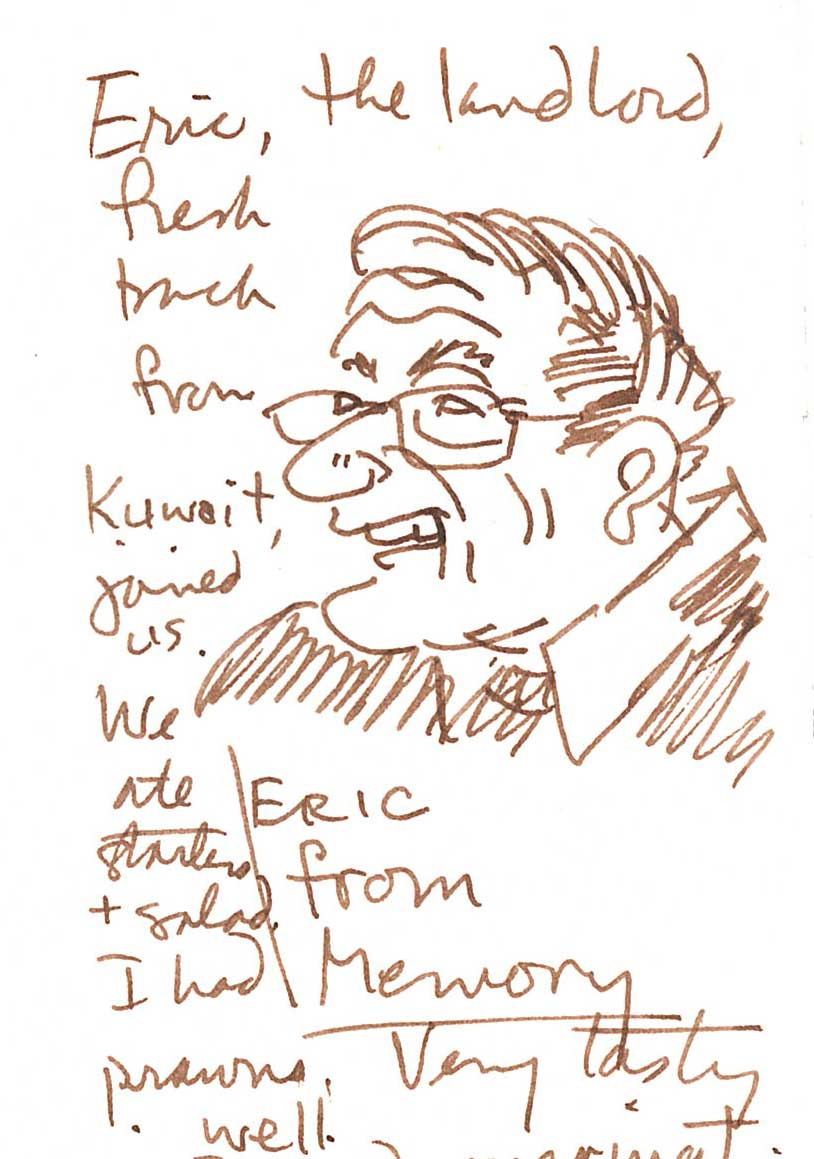 Eric, the landlord,
fresh
back
from
Kuwait,
joined
us.
We
ate
starters
+ salad.
I had
prawns. Very tasty
well.
ERIC
from
Memory